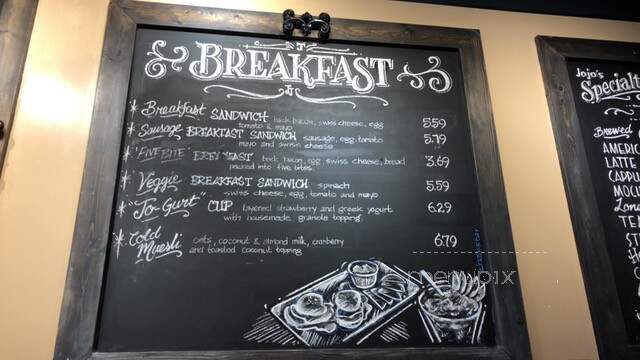 BREAKFAST
* Breakfast SANDWICH back bacon, swiss cheese, egg 5.59
tomato & mayo
* Sausage BREAKFAST SANDWICH sausage, egg, tomato 5.79
mayo and swiss cheese
* "FIVE BITE" BREAKFAST back bacon, egg, swiss cheese, bread 3.69
packed into five bites
* Veggie BREAKFAST SANDWICH spinach 5.59
swiss cheese, egg, tomato and mayo
* "Jo-Gurt" CUP layered strawberry and greek yogurt 6.29
with housemade granola topping
* Cold Muesli oats, coconut & almond milk, cranberry 6.79
and toasted coconut topping
menupix
Jojo's
Specialt
Brewed
AMERIC
LATTE
CAPPU
MOCH
Lon
TEA
ST